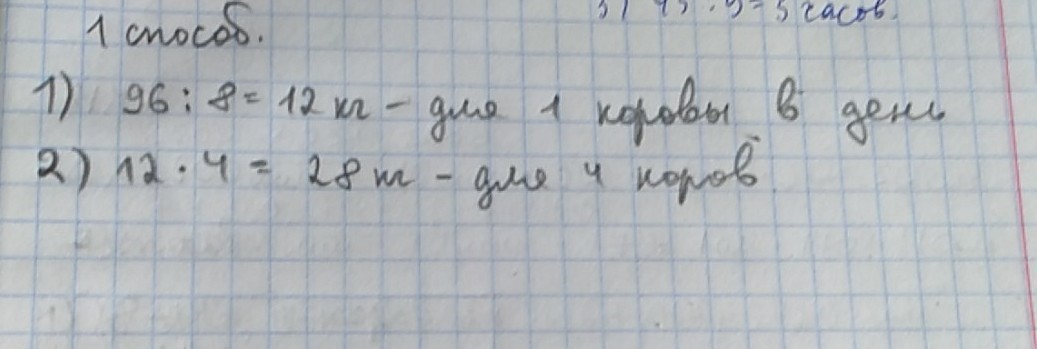 3) 45 : 9 = 5 часов.
1 способ.
1) 96 : 8 = 12 кг - для 1 коровы в день
2) 12 · 4 = 28 кг - для 4 коров